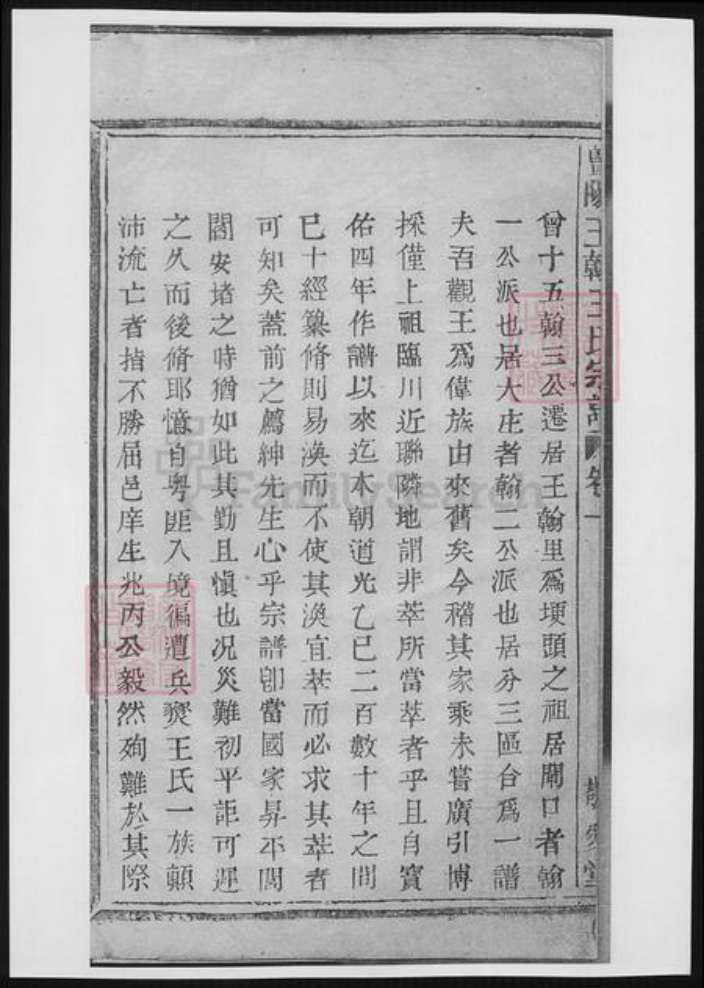 暨陽王韓王氏宗譜 卷一
曾十五翰三公遷居王翰里為埂頭之祖居閘口者翰
一公派也居大庄者翰二公派也居分三區合為一譜
夫吾觀王為偉族由來舊矣今稽其家乘未嘗廣引博
採僅上祖臨川近聯隣地謂非萃所當萃者乎且自寶
佑四年作譜以來迄本朝道光乙巳二百數十年之間
已十經纂脩則易渙而不使其渙宜萃而必求其萃者
可知矣蓋前之薦紳先生心乎宗譜卽當國家昇平閭
閻安堵之時猶如此其勤且愼也况災難初平詎可遲
之久而後脩耶憶自粤匪入境徧遭兵燹王氏一族顛
沛流亡者指不勝屈邑庠生兆丙公毅然殉難於其際